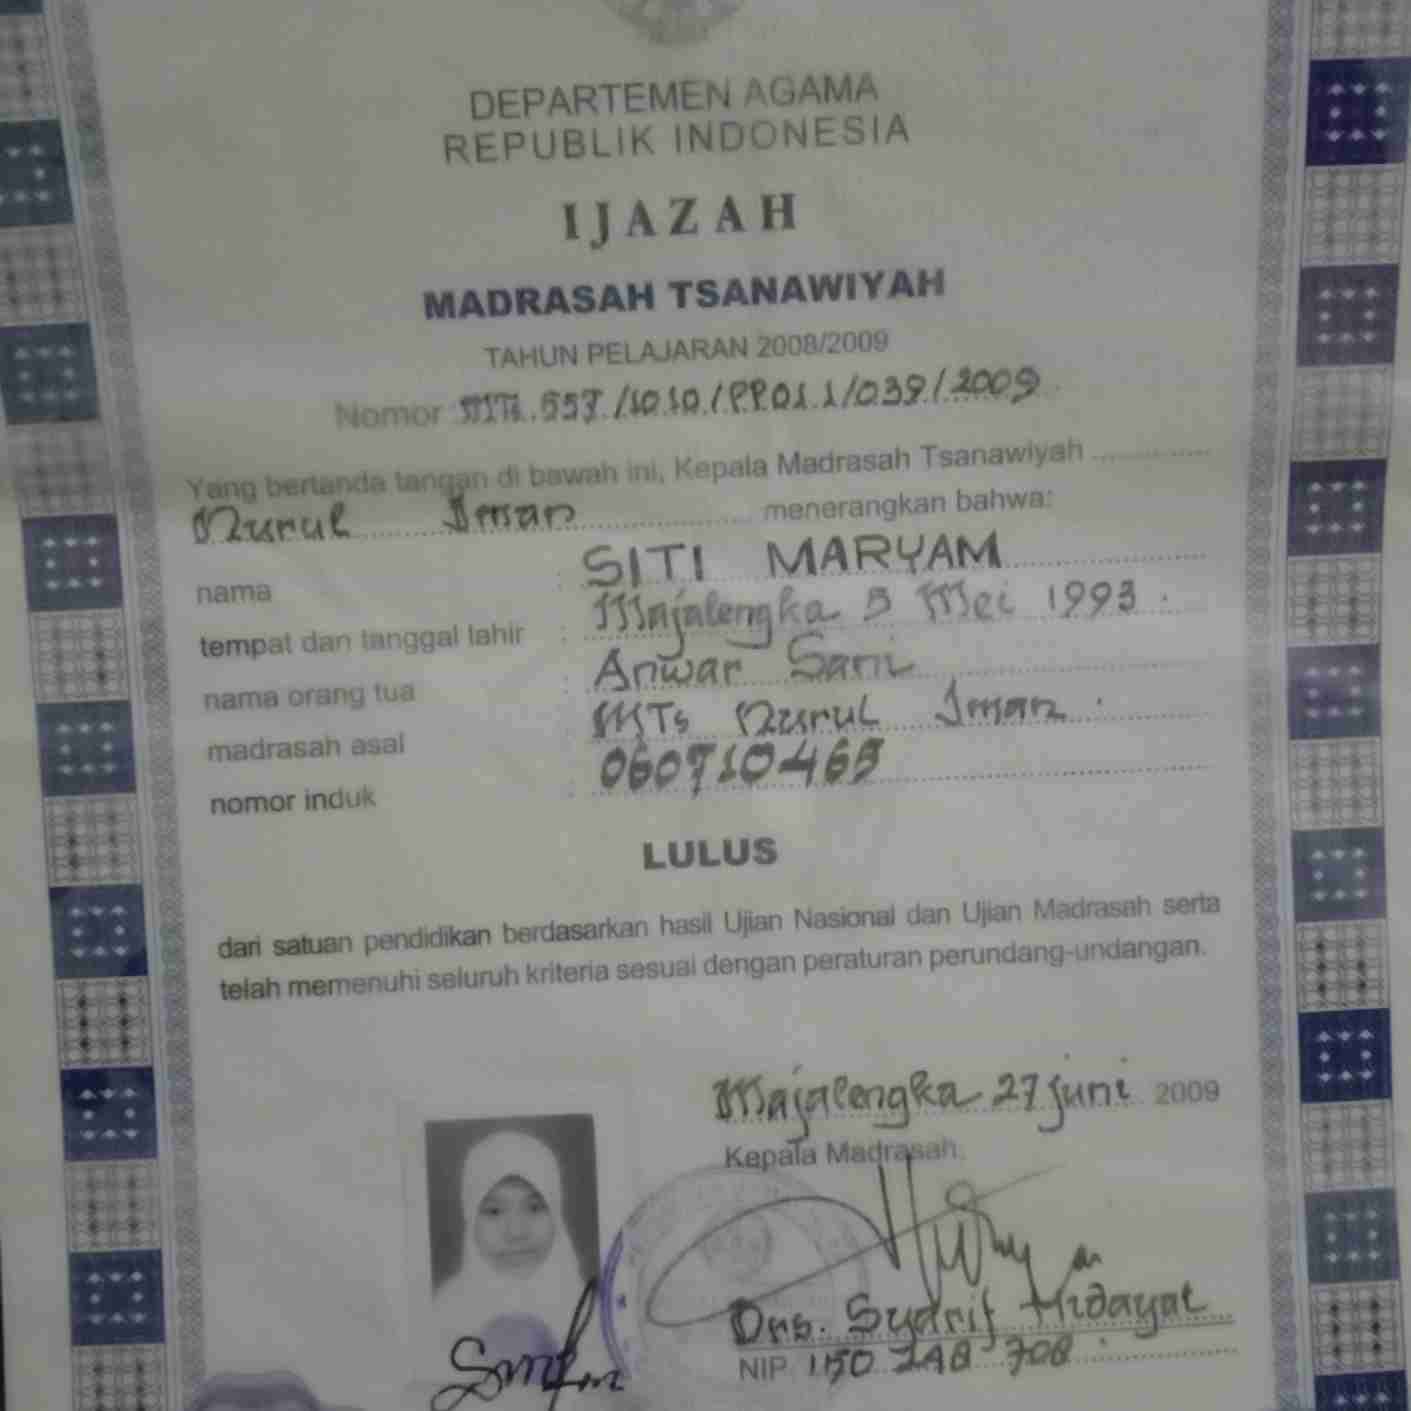 DEPARTEMEN AGAMA
REPUBLIK INDONESIA
IJAZAH
MADRASAH TSANAWIYAH
TAHUN PELAJARAN 2008/2009
Nomor : /PP.01.1/039/2009
Yang bertanda tangan di bawah ini, Kepala Madrasah Tsanawiyah ..............
Nurul Iman menerangkan bahwa:
nama : SITI MARYAM
tempat dan tanggal lahir : Majalengka 5 Mei 1993
nama orang tua : Anwar Sani
madrasah asal : MTs Nurul Iman
nomor induk : 060710465
LULUS
dari satuan pendidikan berdasarkan hasil Ujian Nasional dan Ujian Madrasah serta
telah memenuhi seluruh kriteria sesuai dengan peraturan perundang-undangan.
Majalengka 27 juni 2009
Kepala Madrasah,
Drs. Syarif Hidayat
NIP 150 708